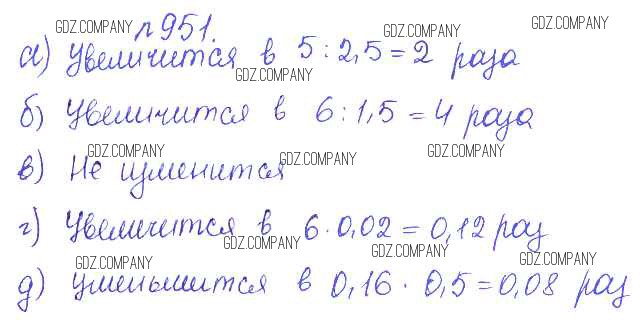 GDZ.COMPANY №951. GDZ.COMPANY GDZ.COMPANY
а) Увеличится в 5 : 2,5 = 2 раза
GDZ.COMPANY
б) Увеличится в 6 : 1,5 = 4 раза
GDZ.COMPANY GDZ.COMPANY GDZ.COMPANY
в) Не изменится
г) Увеличится в 6 · 0,02 = 0,12 раз
GDZ.COMPANY GDZ.COMPANY GDZ.COMPANY GDZ.COMPANY
д) уменьшится в 0,16 · 0,5 = 0,08 раз